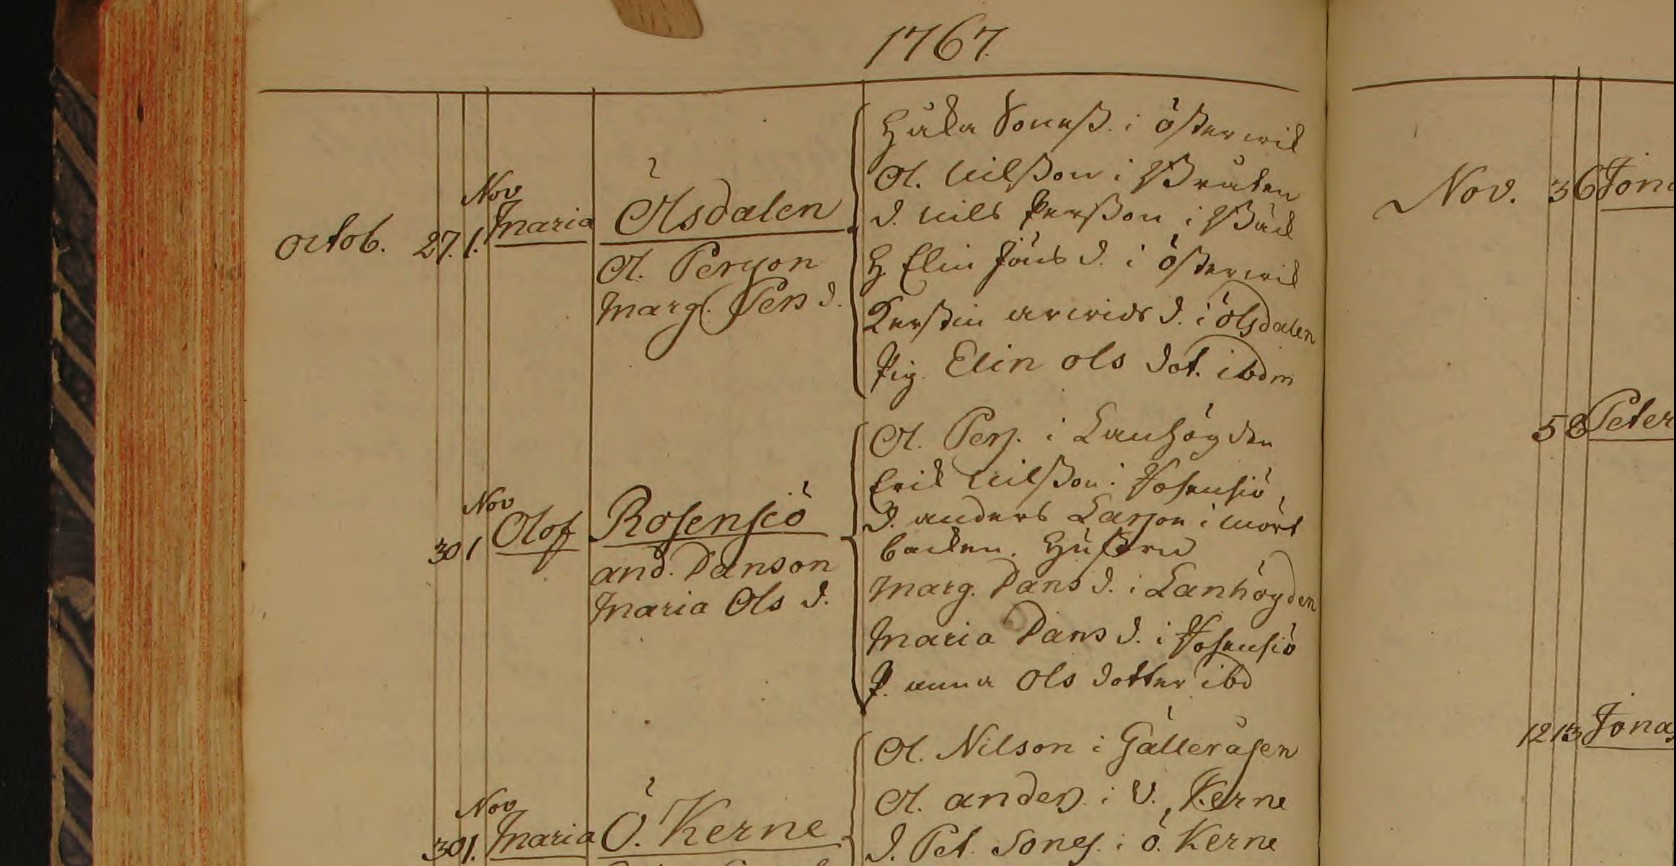 1767.
Octob. 27. Nov 1. Maria
Ölsdalen
Ol. Persson
Marg. Pers d.
Håka Soneß. i Österwik
Ol. Nilsson i Bråten
d. Nils Persson i Bäck
H Elin Jöns d. i Österwik
Kerstin Arwids d. i Ölsdalen
Pig. Elin Ols dot. ibdm
30 Nov 1 Olof
Rosensiö
And. Danson
Maria Ols d.
Ol. Pers. i Lanhögden
Erik Nilsson i Rosensiö,
d. Anders Larson i Mört
backen. Hustru
Marg. Dans d. i Lanhögden
Maria Dans d. i Rosensiö
P. Anna Ols dotter ibd
30 Nov 1. Maria
Ö. Kerne
Ol. Nilson i Gälleråsen
Ol. Anders. i V. Kerne
d. Pet. Sones. i Ö. Kerne
Nov. 3 6 Jon
5 8 Peter
12 13 Jonas